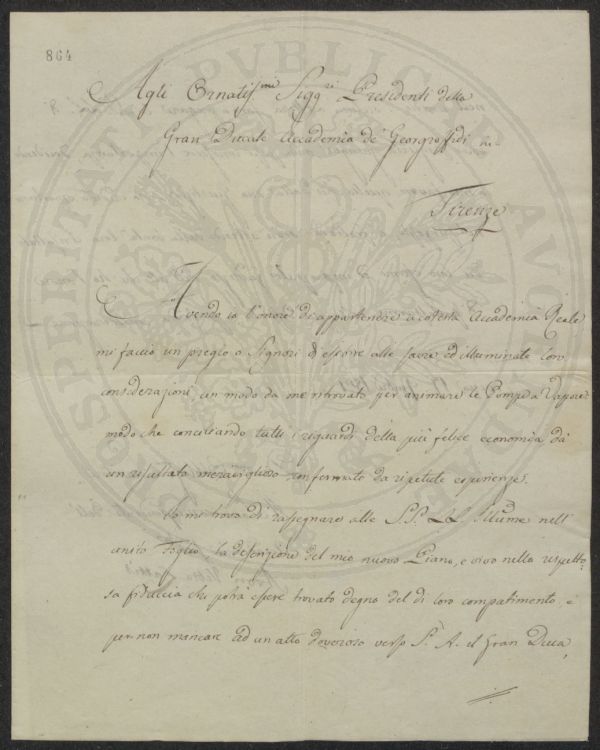 864
Agli Ornatis.mi Sigg.ri Presidenti della
Gran Ducale Accademia de' Georgoffidi in
Firenze
Avendo io l'onore di appartenere a cotesta Accademia Reale
mi faccio un pregio o Signori di esporre alle savie ed illuminate loro
considerazioni un modo da me ritrovato per animare le Pompe a Vapore
modo che conciliando tutti i riguardi della più felice economia dà
un risultato meraviglioso confermato da ripetute esperienze.
Io mi trovo di rassegnare alle S.S. LL. Illũme nell'
unito Foglio la descrizione del mio nuovo Piano, e vivo nella rispetto-
sa fiducia che potrà essere trovato degno del di loro compatimento, e
per non mancare ad un atto doveroso verso S. A. il Gran Duca,
PROSPERITATI PVBLICAE AVGENDAE